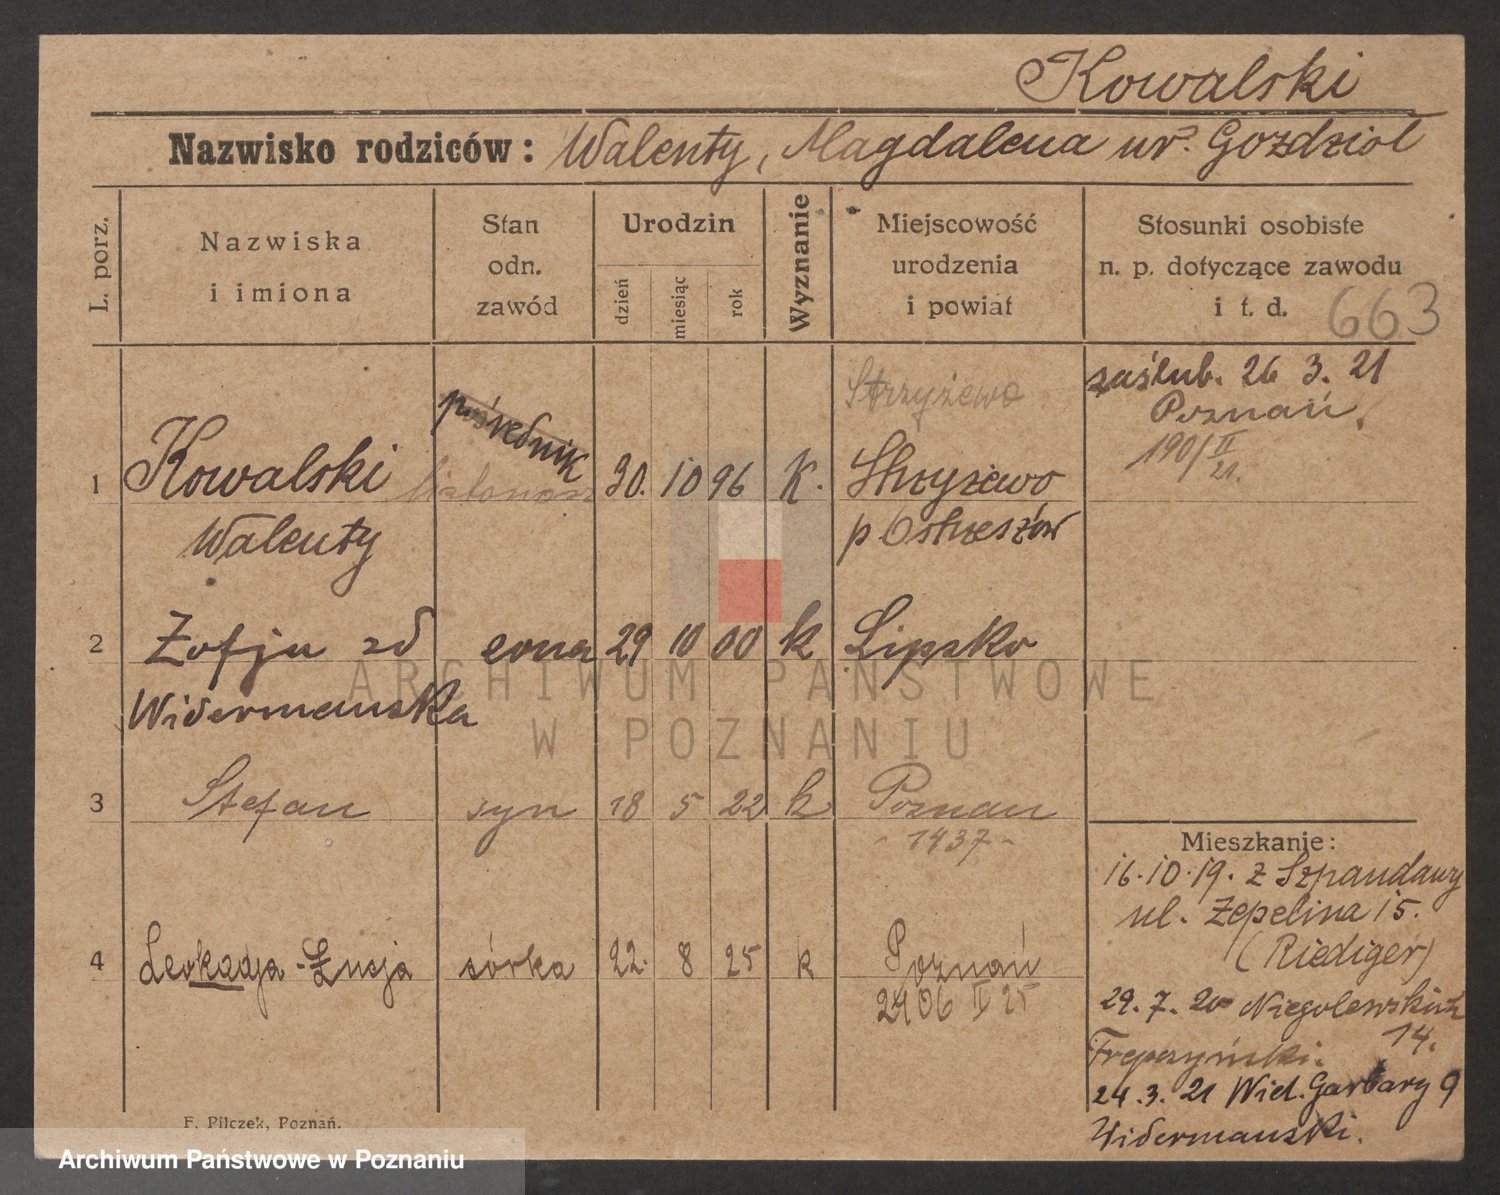 Kowalski
Nazwisko rodziców: Walenty, Magdalena ur. Gozdziol
L. porz.
Nazwiska
i imiona
Stan
odn.
zawód
Urodzin
dzień
miesiąc
rok
Wyznanie
Miejscowość
urodzenia
i powiat
Stosunki osobiste
n. p. dotyczące zawodu
i t. d.
663
Strzyżewo
zaślub. 26 3. 21
Poznań.
190/II
21.
pośrednik
1 Kowalski listonosz 30. 10 96 K. Strzyżewo
Walenty p Ostrzeszów
2 Zofja zd żona 29 10 00 k Lipsko
Widermańska
3 Stefan syn 18 5 22 k Poznań
- 1437 -
4 Leokadja-Łucja córka 22. 8 25 k Poznań
2406 II 25
Mieszkanie:
16.10.19. z Szpandawy
ul. Zepelina 15.
(Riediger)
29. 7. 20 Niegolewskich
14.
24. 3. 21 Wiel. Garbary 9
Widermański.
F. Pilczek, Poznań.
ARCHIWUM PAŃSTWOWE
W POZNANIU
Archiwum Państwowe w Poznaniu